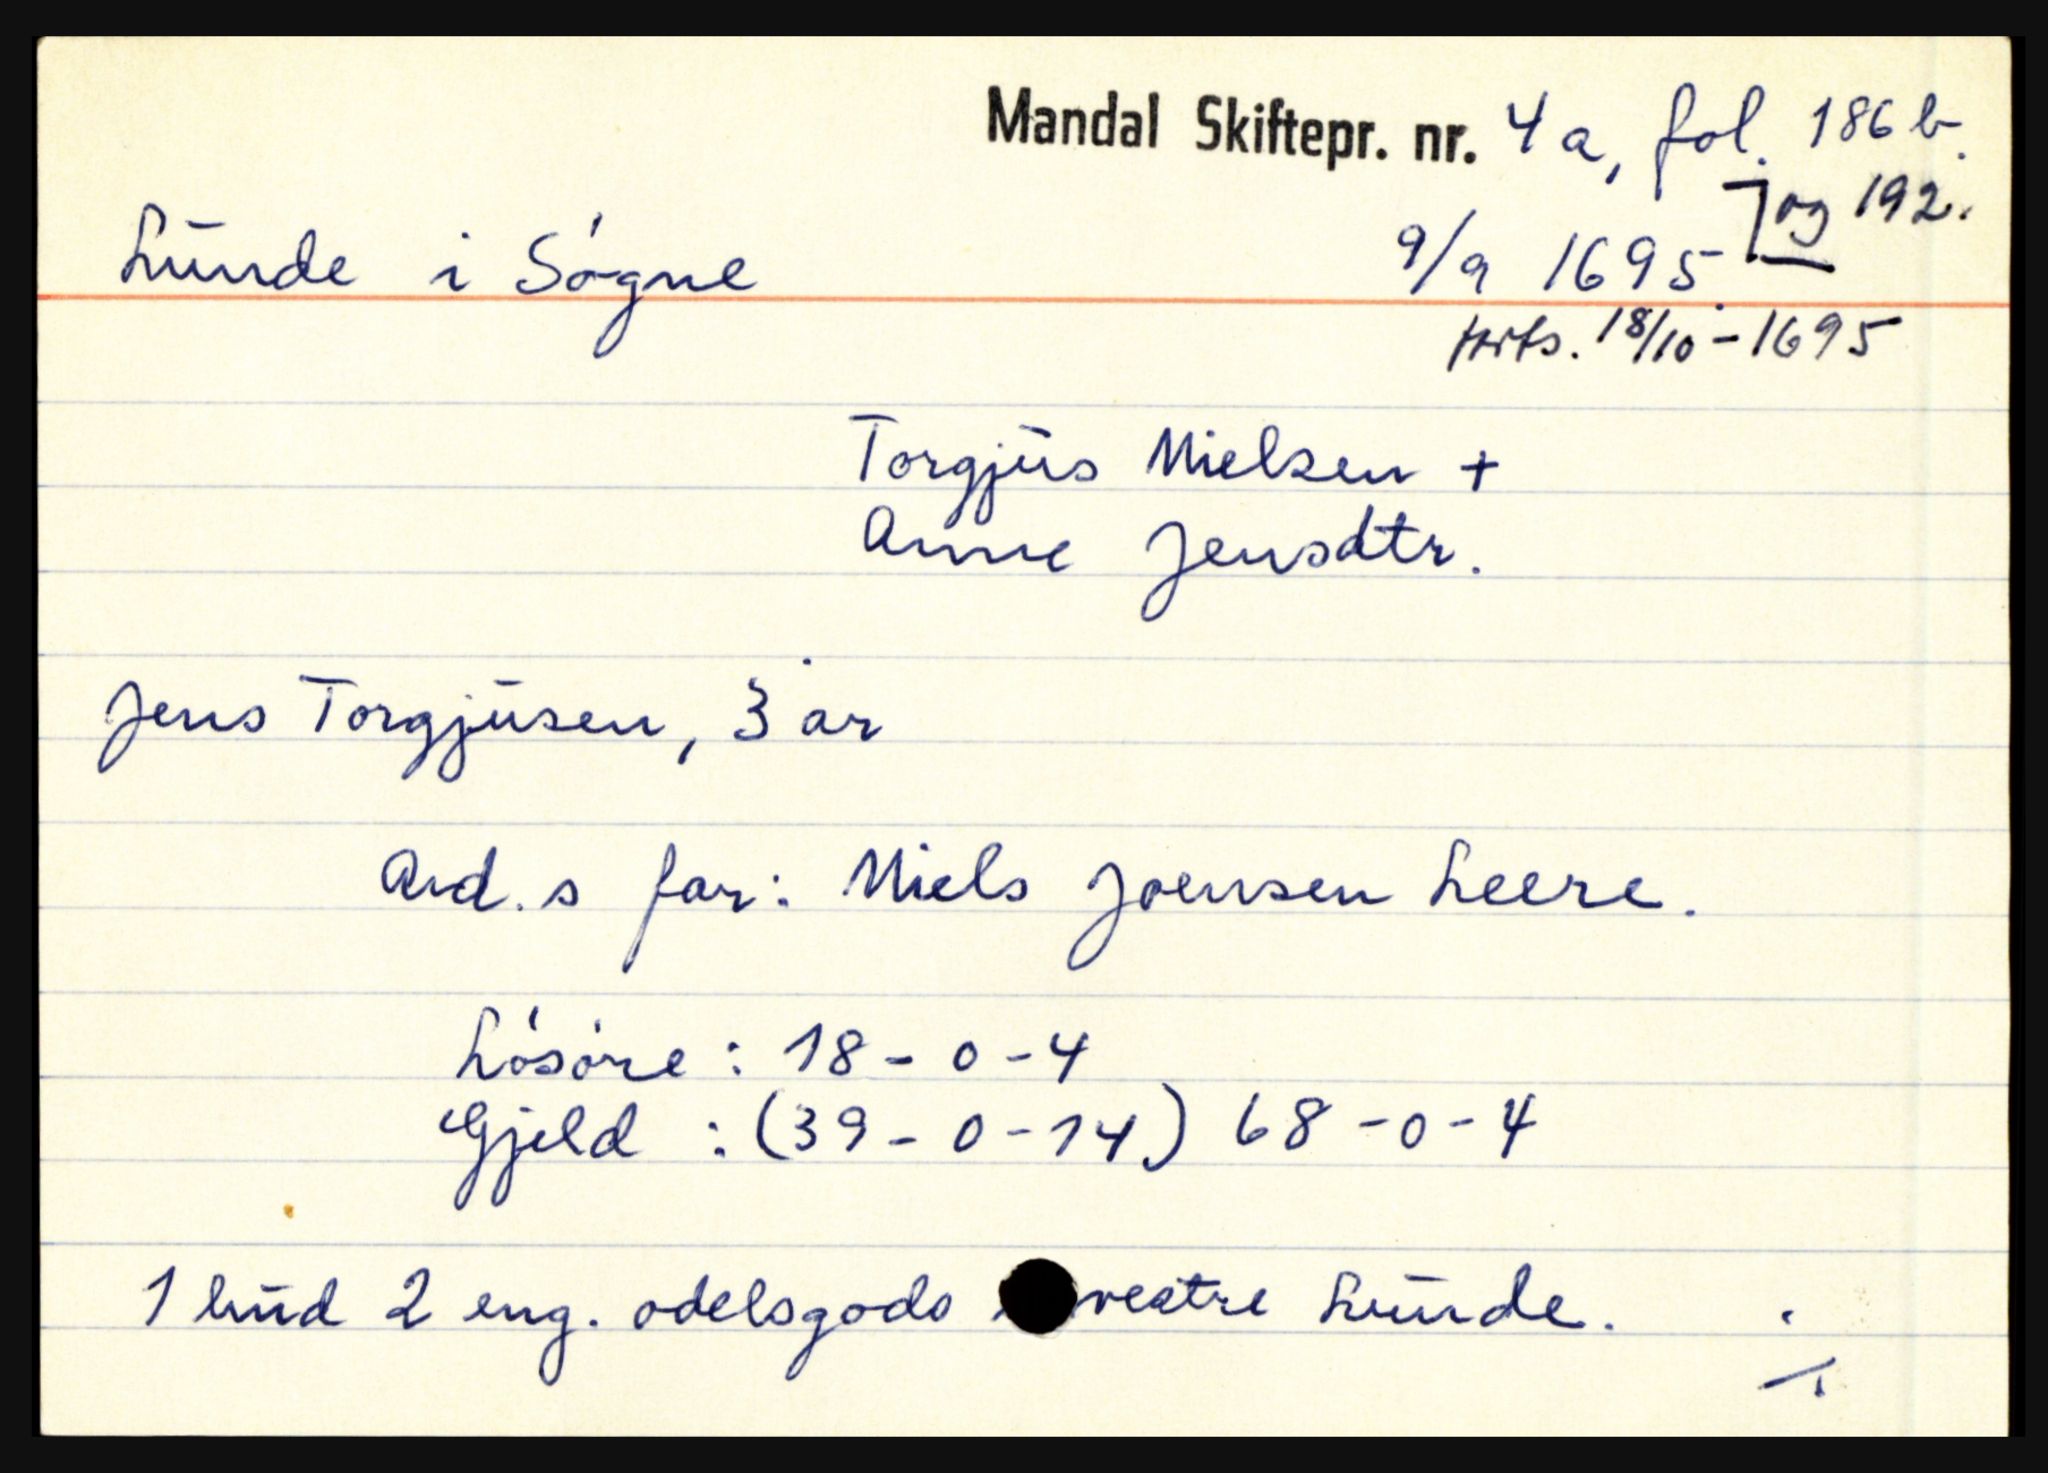 Mandal Skiftepr. nr. 4a, fol. 186 b.
og 192.
Lunde i Søgne 9/9 1695
forts. 18/10 - 1695
Torgjus Nielsen +
Anne Jensdtr.
Jens Torgjusen, 3 år
Avd.s far: Niels Joensen Leere.
Løsøre : 18 - 0 - 4
Gjeld : (39 - 0 - 14) 68 - 0 - 4
1 hud 2 eng. odelsgods vestre Lunde.